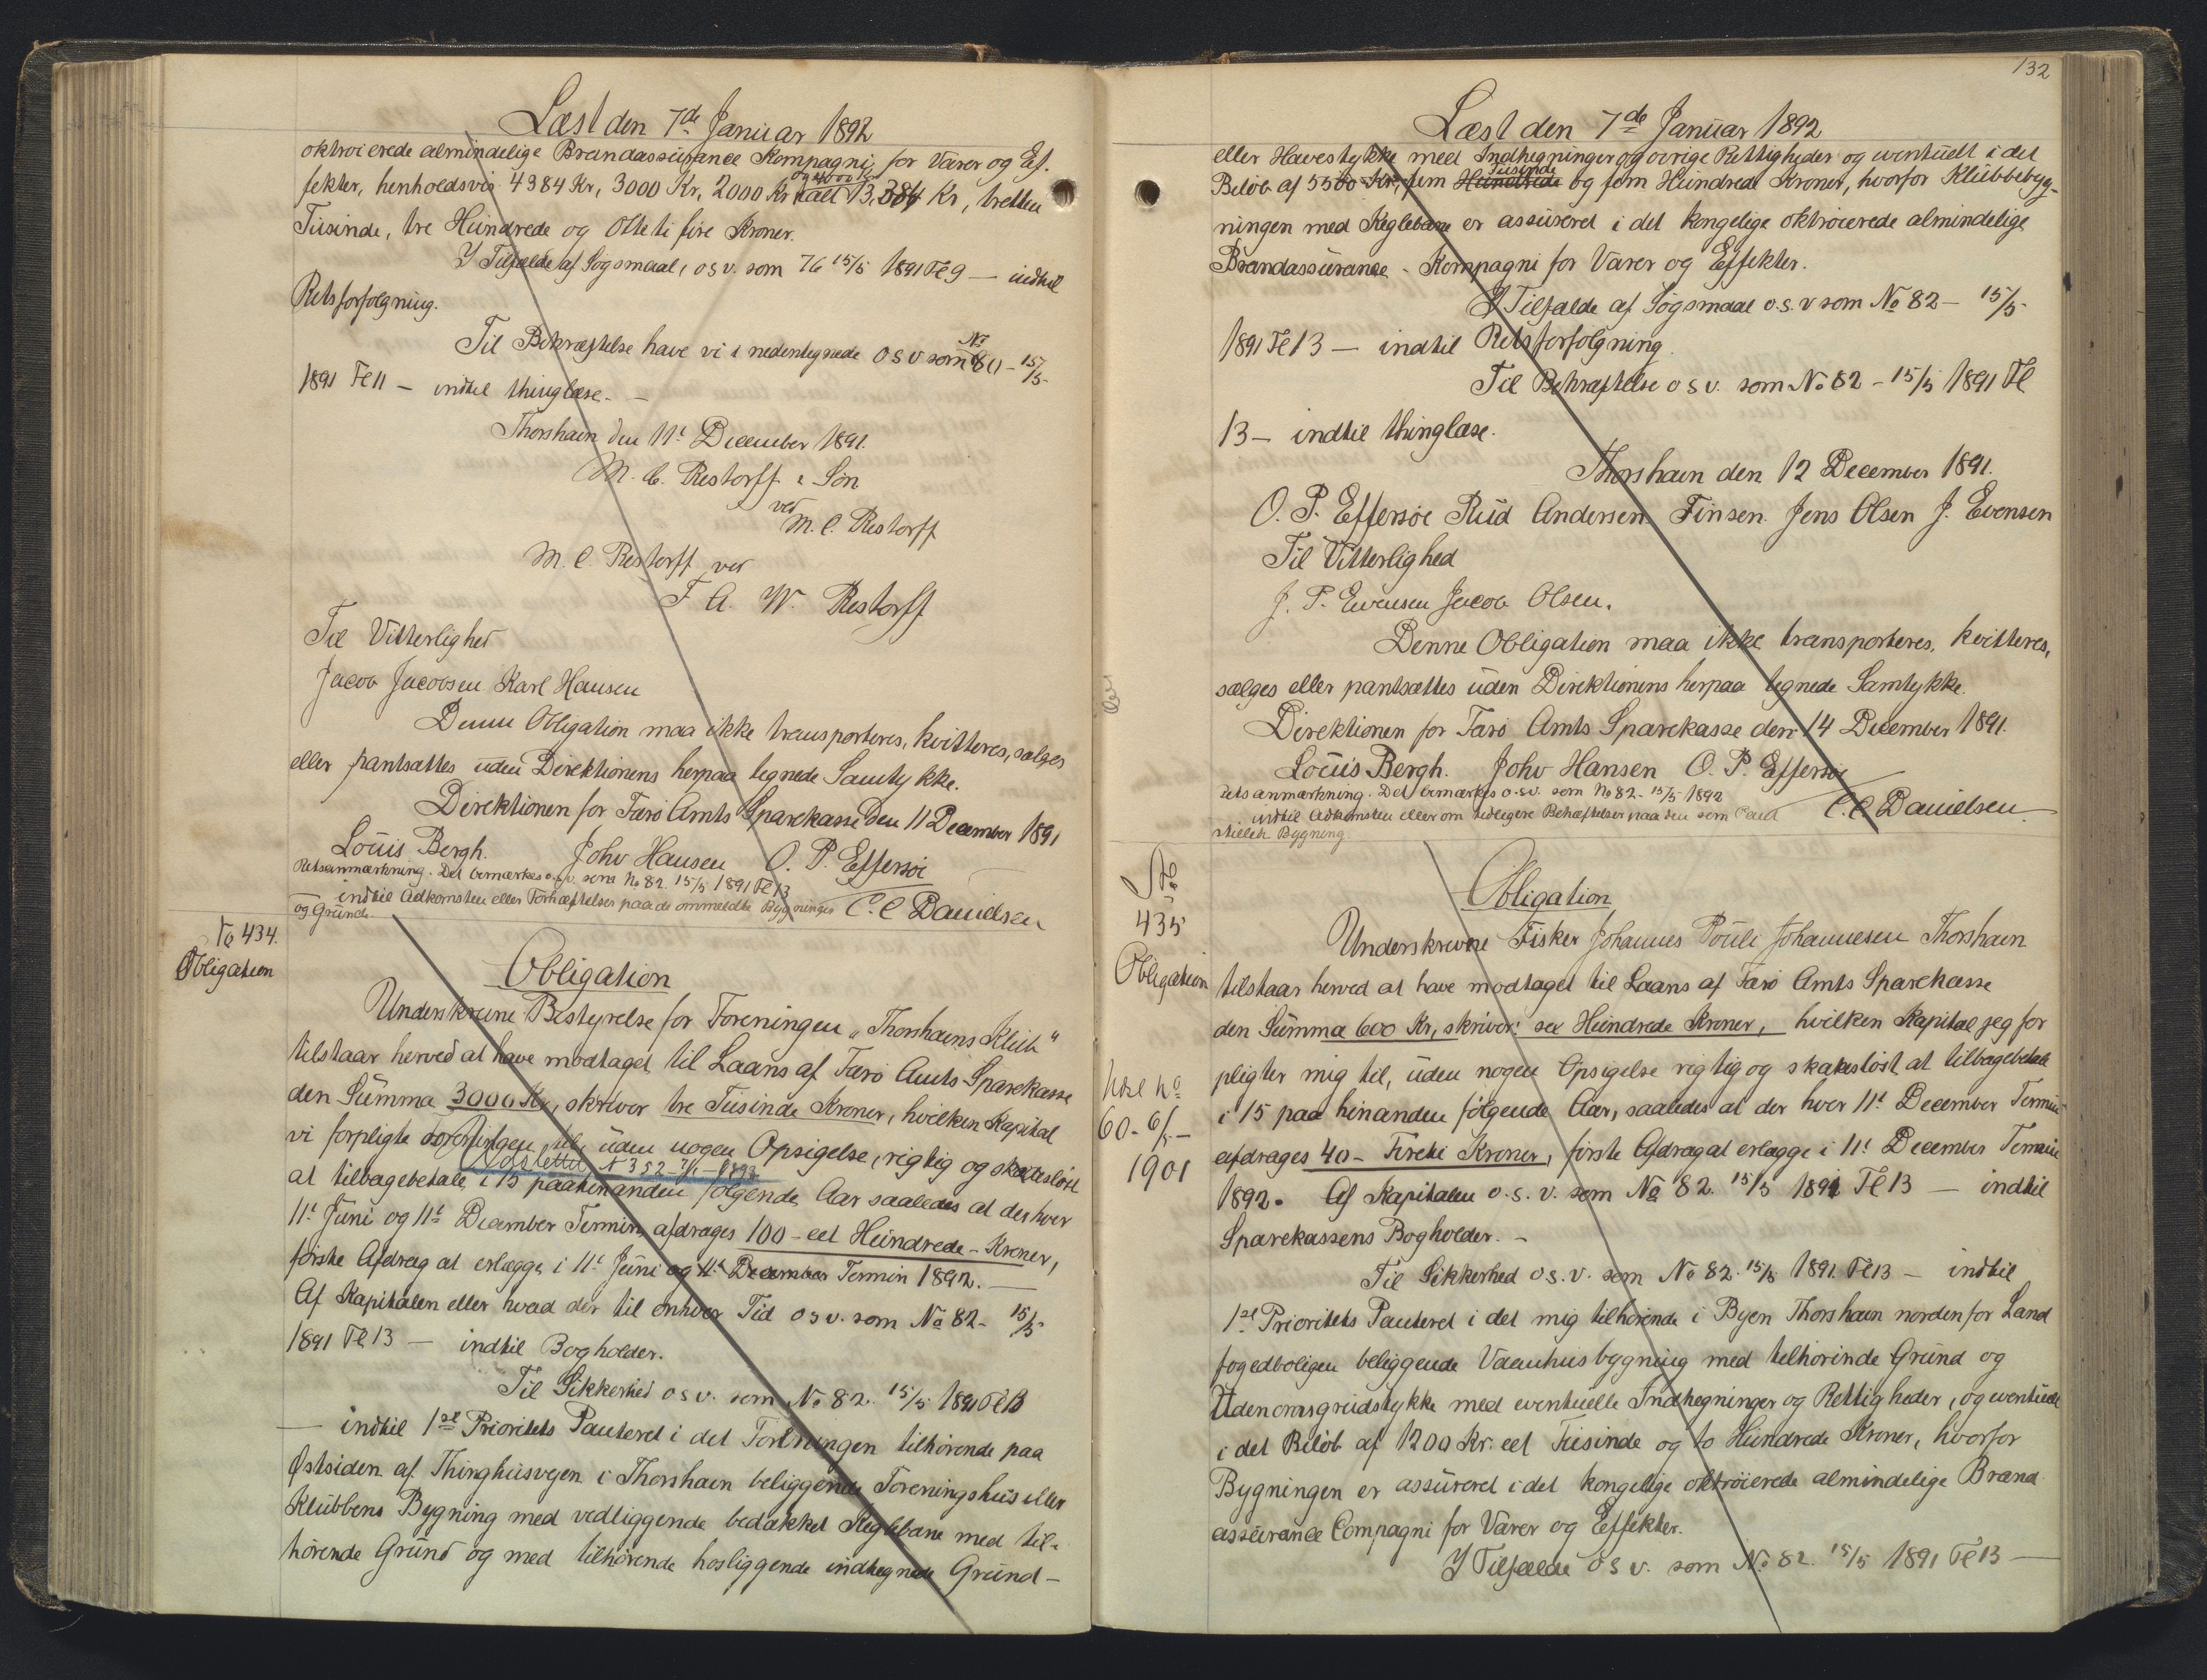 Læst den 7de Januar 1892
oktroierede almindelige Brandassurance Kompagni for Varer og Ef-
fekter, henholdsvis 4384 Kr, 3000 Kr, 2000 Kr og 4000 Kr ialt 13,384 Kr, tretten
Tusinde, tre Hundrede og Otteti fire Kroner.
I Tilfælde af Søgsmaal, osv. som 76 15/5 1891 Fl 9 — indtil
Retsforfølgning.
Til Bekræftelse have vi i nedentegnede osv som No 80 - 15/5-
1891 Fl 11 — indtil thinglæse. —
Thorshavn den 11t December 1891.
M. C. Restorff & Søn
ved
M. C. Restorff
M. C. Restorff ved
F. A. W. Restorff
Til Vitterlighed
Jacob Jacobsen Karl Hansen
Denne Obligation maa ikke transporteres, kvitteres, sælges
eller pantsættes uden Direktionens herpaa tegnede Samtykke.
Direktionen for Færø Amts Sparekasse den 11 December 1891
Louis Bergh. Johv Hansen O. P. Effersøe
Retsanmærkning. Det bemærkes osv. som No 82. 15/5 1891 Fl 13
— indtil Adkomsten eller Forhæftelser paa de ommeldte Bygninger C. C Danielsen
og Grunde
No 434.
Obligation
Obligation
Underskrevne Bestyrelse for Foreningen "Thorshavns Klub"
tilstaar herved at have modtaget til Laans af Færø Amts Sparekasse
den Summa 3000 Kr, skriver tre Tusinde Kroner, hvilken Kapital
vi forpligte Foreningen til, uden nogen Opsigelse, rigtig og skadesløst
Udslettet N 352 - 7/1 - 1892
at tilbagebetale i 15 paahinanden følgende Aar saaledes at der hver
11t Juni og 11t December Termin afdrages 100 - eet Hundrede - Kroner,
første Afdrag at erlægge i 11t Juni og 11t December Termin 1892. —
Af Kapitalen eller hvad der til enhver Tid osv. som No 82- 15/5-
1891 Fl 13 — indtil Bogholder.
Til Sikkerhed osv. som No 82. 15/5 1891 Fl 13
— indtil 1ste Prioritets Panteret i det Foreningen tilhørende paa
Østsiden af Thinghusvejen i Thorshavn beliggende Foreningshus eller
Klubbens Bygning med vedliggende bedækket Keglebane med til-
hørende Grund og med tilhørende hosliggende indhegnede Grund-
132
Læst den 7de Januar 1892
eller Havestykke med Indhegninger og øvrige Rettigheder og eventuelt i det
Beløb af 5500 Kr, fem Hundrede Tusinde og fem Hundrede Kroner, hvorfor Klubbebyg-
ningen med Keglebane er assureret i det kongelige oktroierede almindelige
Brandassurance - Kompagni for Varer og Effekter.
I Tilfælde af Søgsmaal o.s.v som No 82 — 15/5-
1891 Fl 13 — indtil Retsforfølgning.
Til Bekræftelse osv. som No 82 - 15/5 1891 Fl
13 — indtil thinglæse.
Thorshavn den 12 December 1891.
O. P. Effersøe Rud Andersen Finsen Jens Olsen J. Evensen
Til Vitterlighed
J. P. Evensen Jacob Olsen.
Denne Obligation maa ikke transporteres, kvitteres,
sælges eller pantsættes uden Direktionens herpaa tegnede Samtykke.
Direktionen for Færø Amts Sparekasse den 14 December 1891.
Louis Bergh. Johv Hansen O. P. Effersøe
Retsanmærkning. Det bemærkes o.s.v. som No 82- 15/5 1892
indtil Adkomsten eller om tidligere Behæftelser paa den som Pant C. C Danielsen.
stillede Bygning.
No
435
Obligation
Obligation
Underskrevne Fisker Johannes Pouli Johannesen Thorshavn
tilstaar herved at have modtaget til Laans af Færø Amts Sparekasse
den Summa 600 Kr, skriver: sex Hundrede Kroner, — hvilken Kapital jeg for
pligter mig til, uden nogen Opsigelse rigtig og skadesløst at tilbagebetale
i 15 paa hinanden følgende Aar, saaledes at der hver 11t December Termin
afdrages 40 - Fireti Kroner, første Afdrag at erlægge i 11t December Termin
1892. Af Kapitalen o.s.v. som No 82. 15/5 1891 Fl 13 — indtil
Sparekassens Bogholder. -
Udsl No
60 - 6/ -
1901
Til Sikkerhed os.v. som No 82. 15/5 1891. Fl 13 — indtil
1ste Prioritets Panteret i det mig tilhørende i Byen Thorshavn norden for Land
fogedboligen beliggende Vaanhusbygning med tilhørende Grund og
Udenomsgrundstykke med eventuelle Indhegninger og Rettigheder, og eventuelt
i det Beløb af 1200 Kr. eet Tusinde og to Hundrede Kroner, hvorfor
Bygningen er assureret i det kongelige oktroierede almindelige Brand
assurance Compagni for Varer og Effekter.
I Tilfælde osv. som No 82. 15/5 1891 Fl 13 —